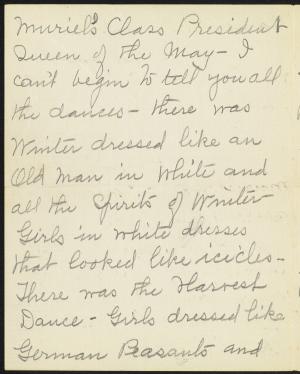 Muriel's Class President
Queen of the May - I
can't begin to tell you all
the dances - there was
Winter dressed like an
Old Man in White and
all the Spirits of Winter
Girls in white dresses
that looked like icicles -
There was the Harvest
Dance - Girls dressed like
German Peasants and